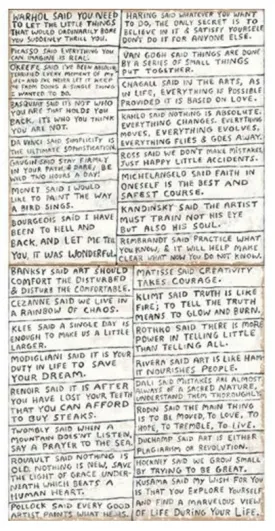 WARHOL SAID YOU NEED
TO LET THE LITTLE THINGS
THAT WOULD ORDINARILY BORE
YOU SUDDENLY THRILL YOU.
PICASSO SAID EVERYTHING YOU
CAN IMAGINE IS REAL.
OKEEFE SAID I'VE BEEN ABSOLUTELY
TERRIFIED EVERY MOMENT OF MY
LIFE AND I'VE NEVER LET IT KEEP
ME FROM DOING A SINGLE THING
I WANTED TO DO.
BASQUIAT SAID IT'S NOT WHO
YOU ARE THAT HOLDS YOU
BACK, IT'S WHO YOU THINK
YOU ARE NOT.
DA VINCI SAID SIMPLICITY IS
THE ULTIMATE SOPHISTICATION
GAUGUIN SAID STAY FIRMLY
IN YOUR PATH & DARE; BE
WILD TWO HOURS A DAY!
MONET SAID I WOULD
LIKE TO PAINT THE WAY
A BIRD SINGS.
BOURGEOIS SAID I HAVE
BEEN TO HELL AND
BACK, AND LET ME TELL
YOU, IT WAS WONDERFUL.
BANKSY SAID ART SHOULD
COMFORT THE DISTURBED
& DISTURB THE COMFORTABLE.
CEZANNE SAID WE LIVE IN
A RAINBOW OF CHAOS.
KLEE SAID A SINGLE DAY IS
ENOUGH TO MAKE US A LITTLE
LARGER.
MODIGLIANI SAID IT IS YOUR
DUTY IN LIFE TO SAVE
YOUR DREAM.
RENOIR SAID IT IS AFTER
YOU HAVE LOST YOUR TEETH
THAT YOU CAN AFFORD
TO BUY STEAKS.
TWOMBLY SAID WHEN A
MOUNTAIN DOESN'T LISTEN,
SAY A PRAYER TO THE SEA.
ROUAULT SAID NOTHING IS
OLD, NOTHING IS NEW, SAVE
THE LIGHT OF GRACE UNDER-
NEATH WHICH BEATS A
HUMAN HEART.
POLLOCK SAID EVERY GOOD
ARTIST PAINTS WHAT HE IS.
HARING SAID WHATEVER YOU WANT
TO DO, THE ONLY SECRET IS TO
BELIEVE IN IT & SATISFY YOURSELF
DON'T DO IT FOR ANYONE ELSE.
VAN GOGH SAID THINGS ARE DONE
BY A SERIES OF SMALL THINGS
PUT TOGETHER.
CHAGALL SAID IN THE ARTS, AS
IN LIFE, EVERYTHING IS POSSIBLE
PROVIDED IT IS BASED ON LOVE.
KAHLO SAID NOTHING IS ABSOLUTE.
EVERYTHING CHANGES, EVERYTHING
MOVES, EVERYTHING EVOLVES,
EVERYTHING FLIES & GOES AWAY.
ROSS SAID WE DON'T MAKE MISTAKES
JUST HAPPY LITTLE ACCIDENTS.
MICHELANGELO SAID FAITH IN
ONESELF IS THE BEST AND
SAFEST COURSE.
KANDINSKY SAID THE ARTIST
MUST TRAIN NOT HIS EYE
BUT ALSO HIS SOUL.
REMBRANDT SAID PRACTICE WHAT
YOU KNOW, & IT WILL HELP MAKE
CLEAR WHAT NOW YOU DO NOT KNOW.
MATISSE SAID CREATIVITY
TAKES COURAGE.
KLIMT SAID TRUTH IS LIKE
FIRE; TO TELL THE TRUTH
MEANS TO GLOW AND BURN.
ROTHKO SAID THERE IS MORE
POWER IN TELLING LITTLE
THAN TELLING ALL.
RIVERA SAID ART IS LIKE HAM
IT NOURISHES PEOPLE.
DALI SAID MISTAKES ARE ALMOST
ALWAYS OF A SACRED NATURE,
UNDERSTAND THEM THOROUGHLY.
RODIN SAID THE MAIN THING
IS TO BE MOVED, TO LOVE, TO
HOPE, TO TREMBLE, TO LIVE.
DUCHAMP SAID ART IS EITHER
PLAGIARISM OR REVOLUTION.
HOCKNEY SAID WE GROW SMALL
BY TRYING TO BE GREAT.
KUSAMA SAID MY WISH FOR YOU
IS THAT YOU EXPLORE YOURSELF
AND FIND A MARVELOUS VIEW
OF LIFE DURING YOUR LIFE.